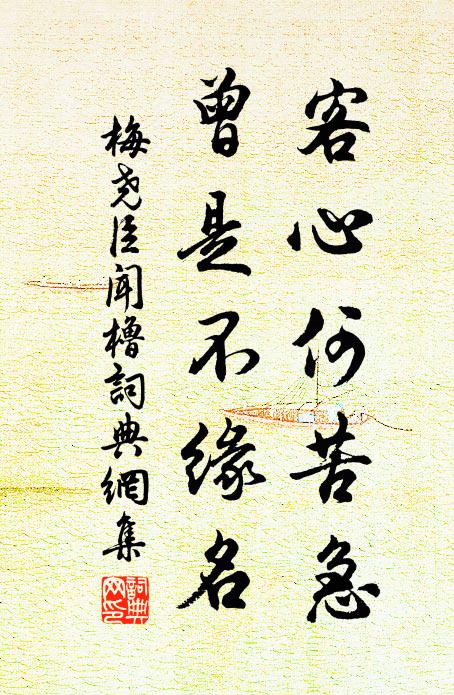 客心何苦急
曾是不緣名
梅尧臣闻橹詞典網集
詞典网印